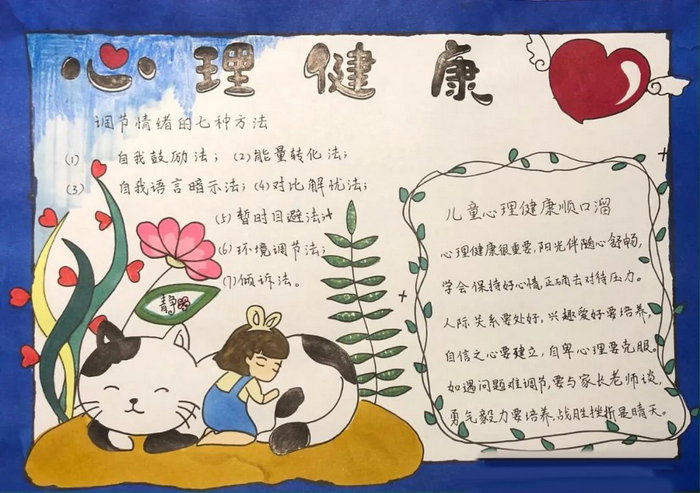 心理健康
调节情绪的七种方法
(1) 自我鼓励法；(2)能量转化法；
(3) 自我语言暗示法；(4)对比解忧法；
(5) 暂时回避法；
(6)环境调节法；
(7)倾诉法。
儿童心理健康顺口溜
心理健康很重要，阳光伴随心舒畅，
学会保持好心情，正确去对待压力。
人际关系要处好，兴趣爱好要培养，
自信之心要建立，自卑心理要克服。
如遇问题难调节，要与家长老师谈，
勇气毅力要培养，战胜挫折是晴天。